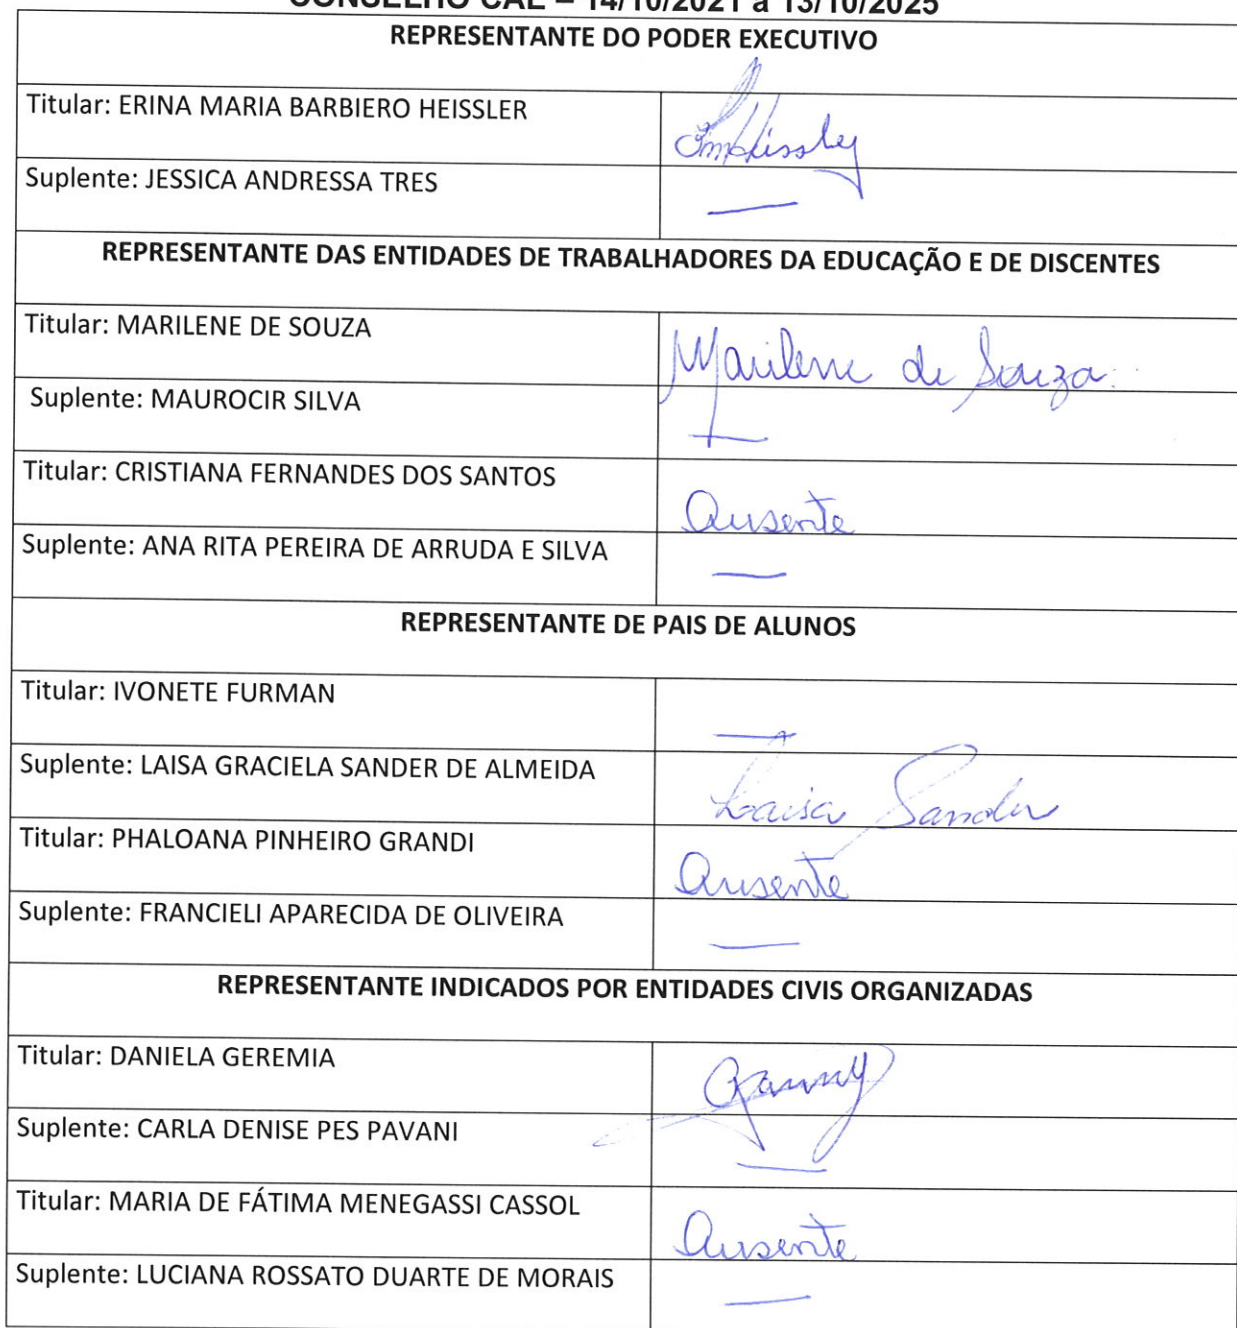 CONSELHO CAE – 14/10/2021 a 13/10/2025
REPRESENTANTE DO PODER EXECUTIVO
Titular: ERINA MARIA BARBIERO HEISSLER
Suplente: JESSICA ANDRESSA TRES
REPRESENTANTE DAS ENTIDADES DE TRABALHADORES DA EDUCAÇÃO E DE DISCENTES
Titular: MARILENE DE SOUZA Marilene de Souza
Suplente: MAUROCIR SILVA
Titular: CRISTIANA FERNANDES DOS SANTOS Ausente
Suplente: ANA RITA PEREIRA DE ARRUDA E SILVA
REPRESENTANTE DE PAIS DE ALUNOS
Titular: IVONETE FURMAN
Suplente: LAISA GRACIELA SANDER DE ALMEIDA Laisa Sander
Titular: PHALOANA PINHEIRO GRANDI Ausente
Suplente: FRANCIELI APARECIDA DE OLIVEIRA
REPRESENTANTE INDICADOS POR ENTIDADES CIVIS ORGANIZADAS
Titular: DANIELA GEREMIA
Suplente: CARLA DENISE PES PAVANI
Titular: MARIA DE FÁTIMA MENEGASSI CASSOL Ausente
Suplente: LUCIANA ROSSATO DUARTE DE MORAIS